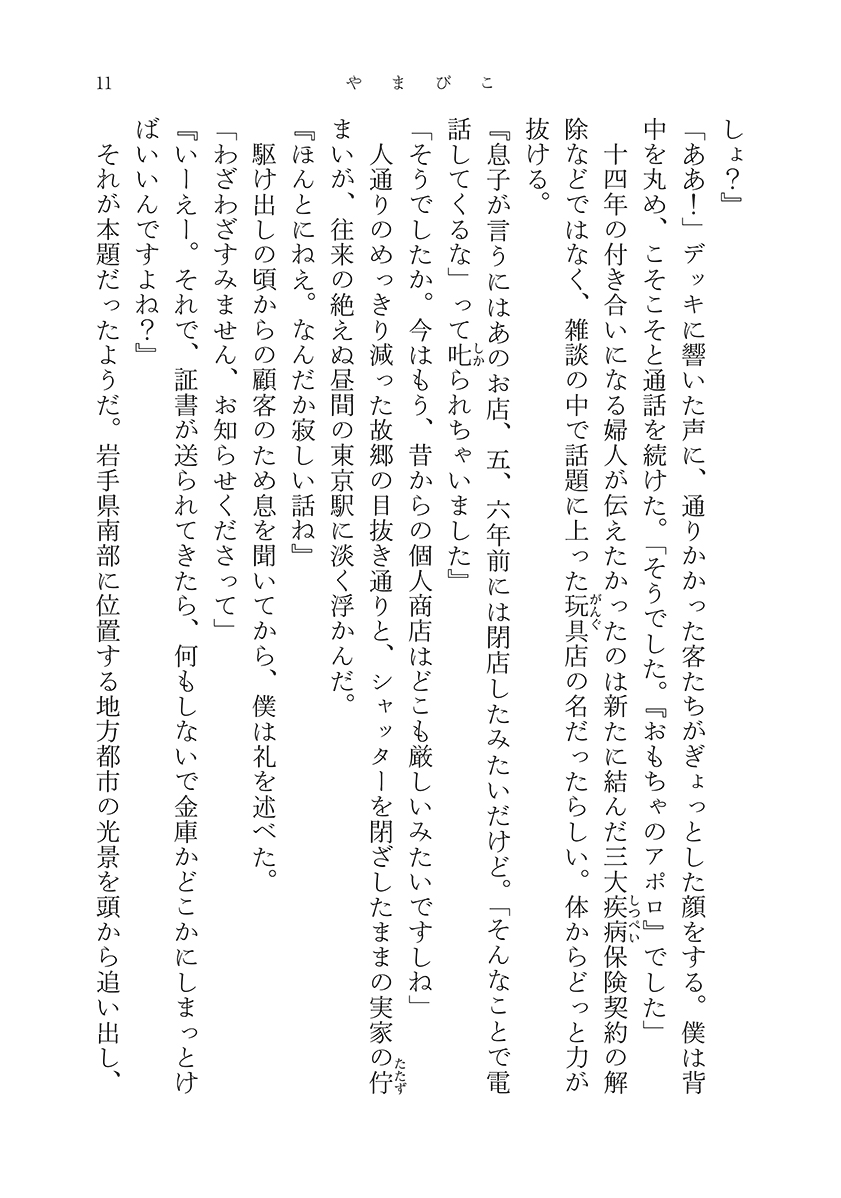 11
やまびこ
しょ？』
「ああ！」デッキに響いた声に、通りかかった客たちがぎょっとした顔をする。僕は背
中を丸め、こそこそと通話を続けた。「そうでした。『おもちゃのアポロ』でした」
十四年の付き合いになる婦人が伝えたかったのは新たに結んだ三大疾病保険契約の解
しっぺい
除などではなく、雑談の中で話題に上った玩具店の名だったらしい。体からどっと力が
がんぐ
抜ける。
『息子が言うにはあのお店、五、六年前には閉店したみたいだけど。「そんなことで電
話してくるな」って叱られちゃいました』
しか
「そうでしたか。今はもう、昔からの個人商店はどこも厳しいみたいですしね」
人通りのめっきり減った故郷の目抜き通りと、シャッターを閉ざしたままの実家の佇
たたず
まいが、往来の絶えぬ昼間の東京駅に淡く浮かんだ。
『ほんとにねえ。なんだか寂しい話ね』
駆け出しの頃からの顧客のため息を聞いてから、僕は礼を述べた。
「わざわざすみません、お知らせくださって」
『いーえー。それで、証書が送られてきたら、何もしないで金庫かどこかにしまっとけ
ばいいんですよね？』
それが本題だったようだ。岩手県南部に位置する地方都市の光景を頭から追い出し、